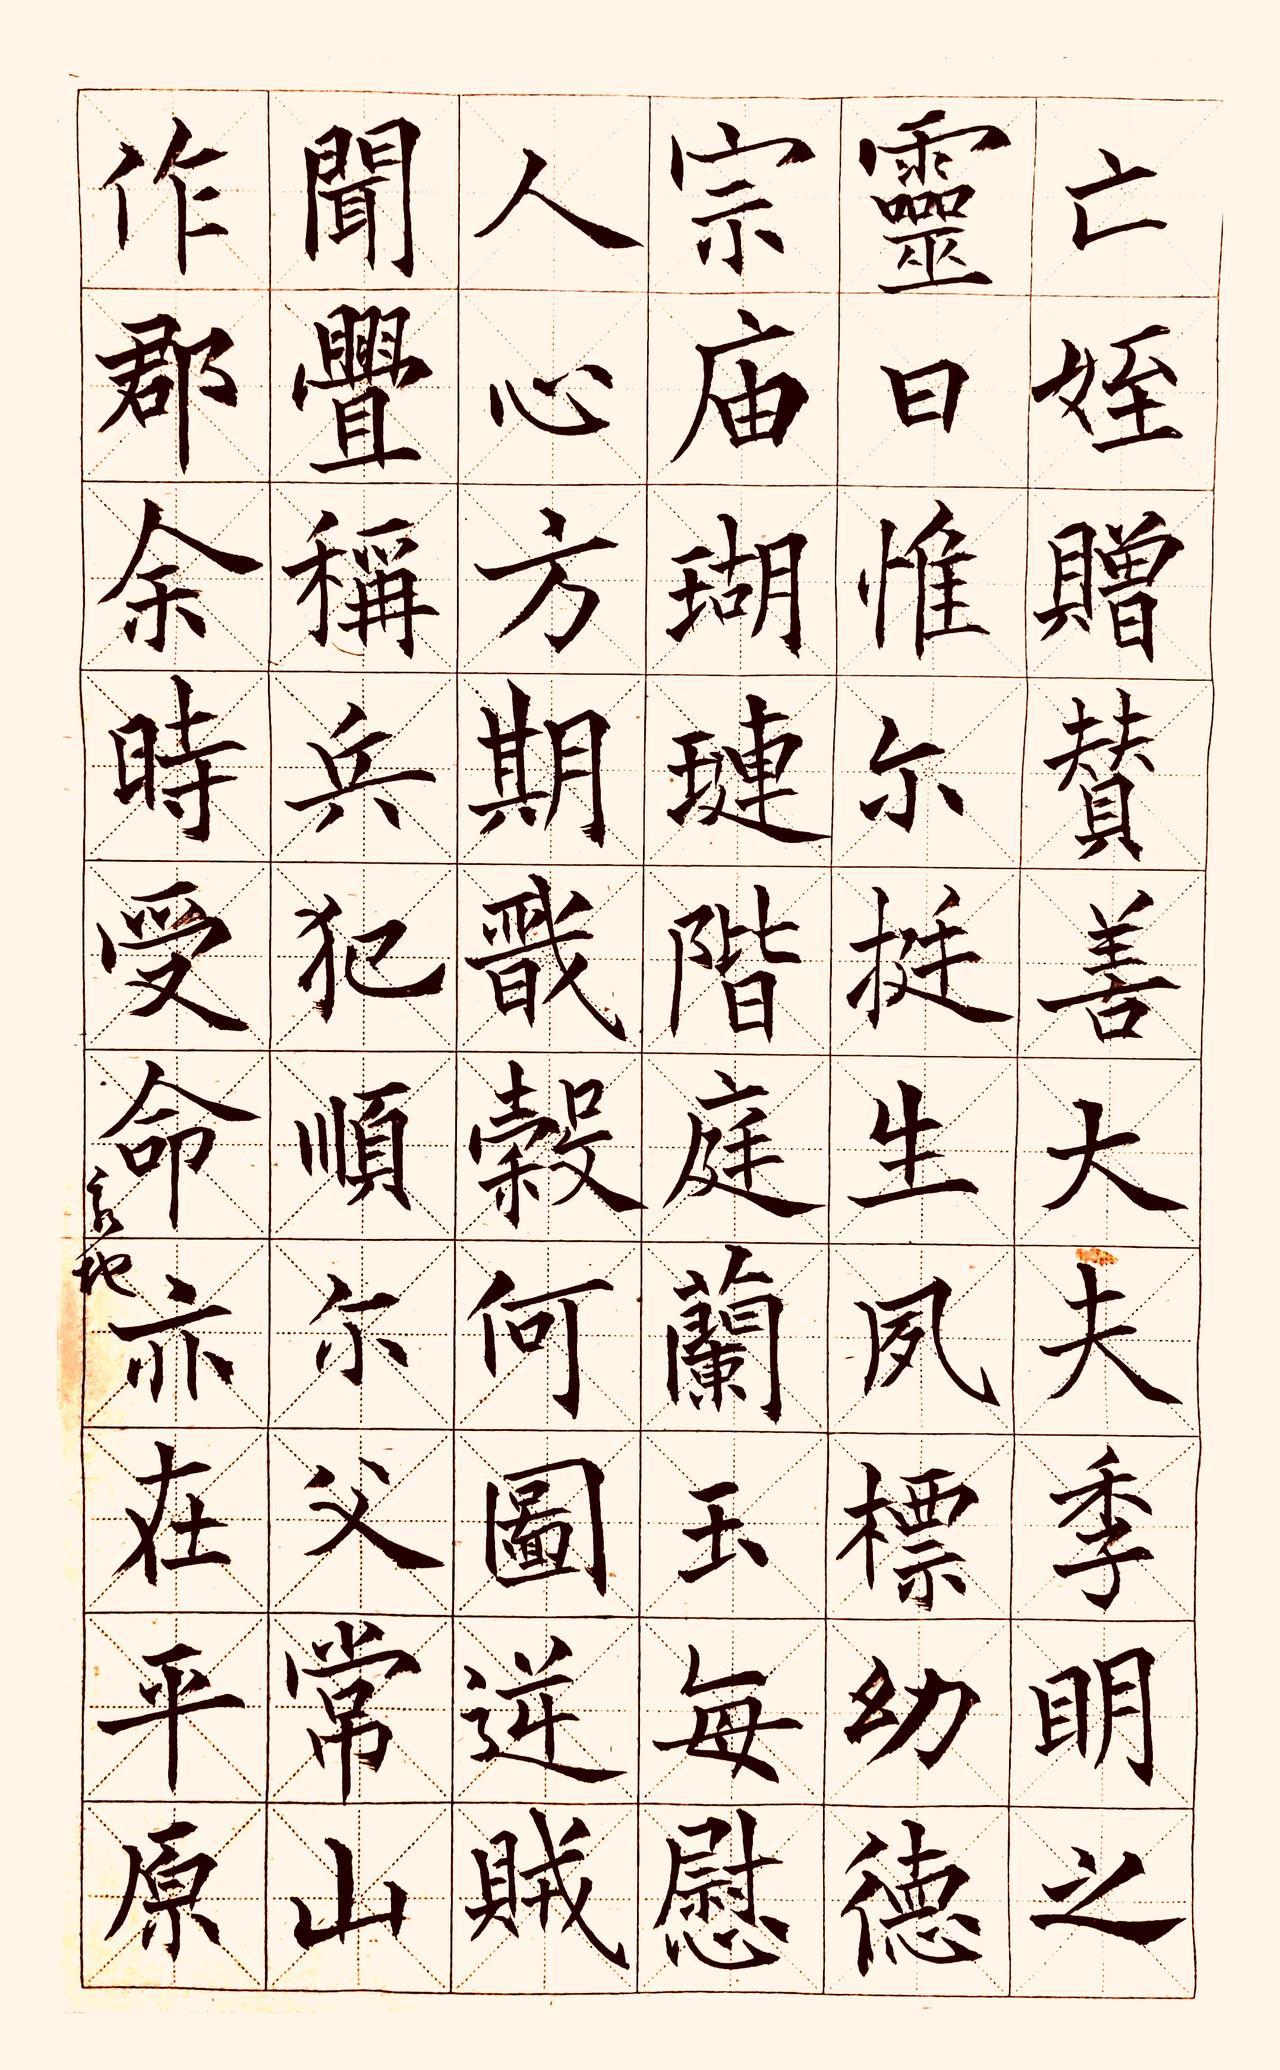 亡姪贈賛善大夫季明之
靈曰惟尓挺生夙標幼德
宗庙瑚璉階庭蘭玉每慰
人心方期戩穀何圖逆賊
聞舋稱兵犯順尓父常山
作郡余時受命亦在平原